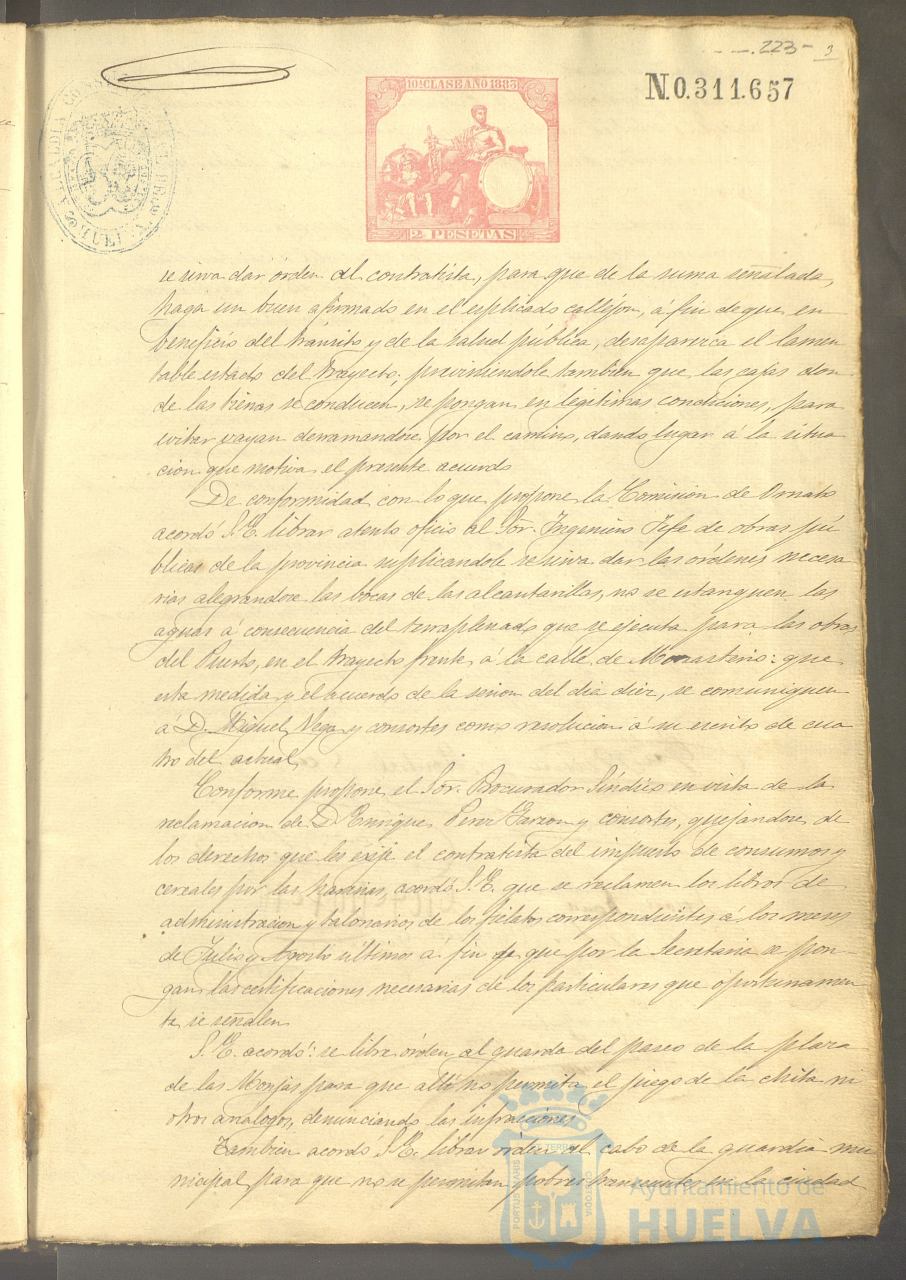 223- 3
N.0.311.657
10ª CLASE AÑO 1883
2 PESETAS
se sirva dar órden al contratista, para que de la suma señalada,
haga un buen afirmado en el esplicado callejon, á fin de que, en
beneficio del tránsito y de la salud pública, desaparezca el lamen
table estado del trayecto; previniendole tambien que las cajas don
de las tierras se conducen, se pongan en legítimas condiciones, para
evitar vayan derramandose por el camino, dando lugar á la situa
cion que motiva el presente acuerdo
De conformidad con lo que propone la Comision de Ornato
acordó S.E. librar atento oficio al Sor. Ingeniero Jefe de obras pú
blicas de la provincia suplicandole se sirva dar las órdenes necesa
rias alegrandose las bocas de las alcantarillas, no se estanquen las
aguas á consecuencia del terraplenado que se ejecuta para las obras
del Puerto, en el trayecto frente á la calle de Monasterio: que
esta medida y el acuerdo de la sesion del dia diez, se comuniquen
á D. Miguel Vega y consortes como resolucion á su escrito de cua
tro del actual
Conforme propone el Sor. Procurador Síndico en vista de la
reclamacion de D. Enrique Perez Garzon y consortes, quejandose de
los derechos que les exije el contratista del impuesto de consumos y
cereales por las harinas, acordó S.E. que se reclamen los libros de
administracion y talonarios de los fielatos correspondientes á los meses
de Julio y Agosto últimos á fin de que por la Secretaria se pon
gan las certificaciones necesarias de los particulares que oportunamen
te se señalen
S.E. acordó: se libre órden al guarda del paseo de la plaza
de las Monjas para que allí no permita el juego de la chita ni
otros análogos, denunciando las infracciones
Tambien acordó S.E. librar órden al cabo de la guardia mu
nicipal para que no se permitan pobres transeuntes en la ciudad
Ayuntamiento de
HUELVA